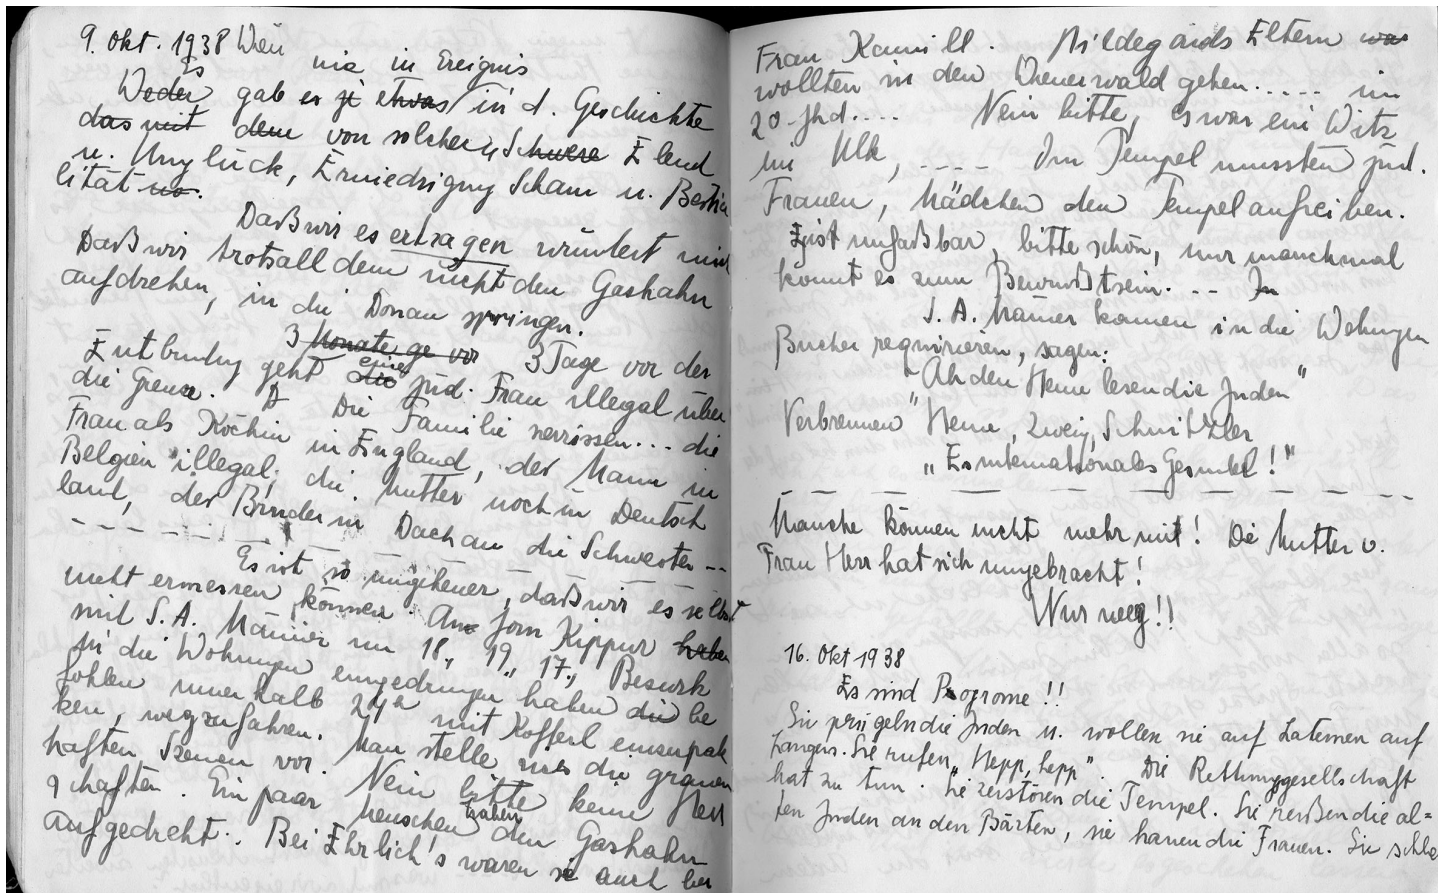 9. Okt. 1938 Wien
Es nie, in Ereignis
Weder gab es je etwas in d. Geschichte
das mit dem von solchen Schwere Elend
u. Unglück, Erniedrigung Scham u. Bestia
lität no.
Daß wir es ertragen wundert mich
Daß wir trotz all dem nicht den Gashahn
aufdrehen, in die Donau springen.
3 Monate ge vor 3 Tage vor der
Entbindung geht die eine jüd. Frau illegal über
die Grenze. D Die Familie zerrissen... die
Frau als Köchin in England, der Mann in
Belgien illegal, die Mutter noch in Deutsch
land, der Bruder in Dachau die Schwester --
Es ist so ungeheuer, daß wir es selbst
nicht ermessen können. Am Jom Kippur haben
mit S.A. Männer im 18., 19., 17., Bezirk
in die Wohnungen eingedrungen haben die be
fohlen innerhalb 24h mit Kofferl einzupak
ken, wegzufahren. Man stelle sich die grauen
haften Szenen vor. Nein bitte keine Herr
schaften. Ein paar Menschen haben den Gashahn
aufgedreht. Bei Ehrlich's waren sie auch bei
Frau Kamill. Hildegards Eltern war
wollten in den Wienerwald gehen..... im
20. Jhd.... Nein bitte, es war ein Witz
ein Ulk, ---- Im Tempel mussten jüd.
Frauen, Mädchen den Tempel aufreiben.
Es ist unfaßbar, bitte schön, nur manchmal
kommt es zum Bewußtsein. -- In
S.A. Männer kommen in die Wohungen
Bücher requirieren, sagen:
"Ah den Heine lesen die Juden"
Verbrennen "Heine, Zweig, Schnitzler
„Es internationales Gesindel!"
Manche können nicht mehr mit! Die Mutter v.
Frau Herr hat sich umgebracht!
Nur weg!!
16. Okt 1938
Es sind Pogrome!!
Sie prügeln die Juden u. wollen sie auf Laternen auf
hängen. Sie rufen „Hepp, hepp". Die Rettungsgesellschaft
hat zu tun. Sie zerstören die Tempel. Sie reißen die al=
ten Juden an den Bärten, sie hauen die Frauen. Sie schla